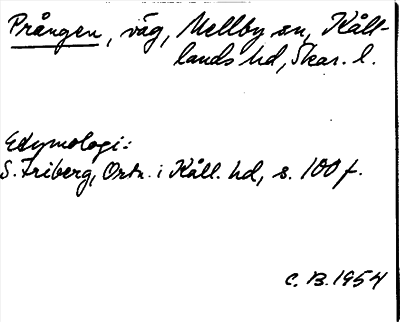 Prången, väg, Mellby sn, Kåll-
lands hd, Skar. l.
Etymologi:
S. Friberg, Ortn. i Kåll. hd, s. 100 f.
C. B. 1954